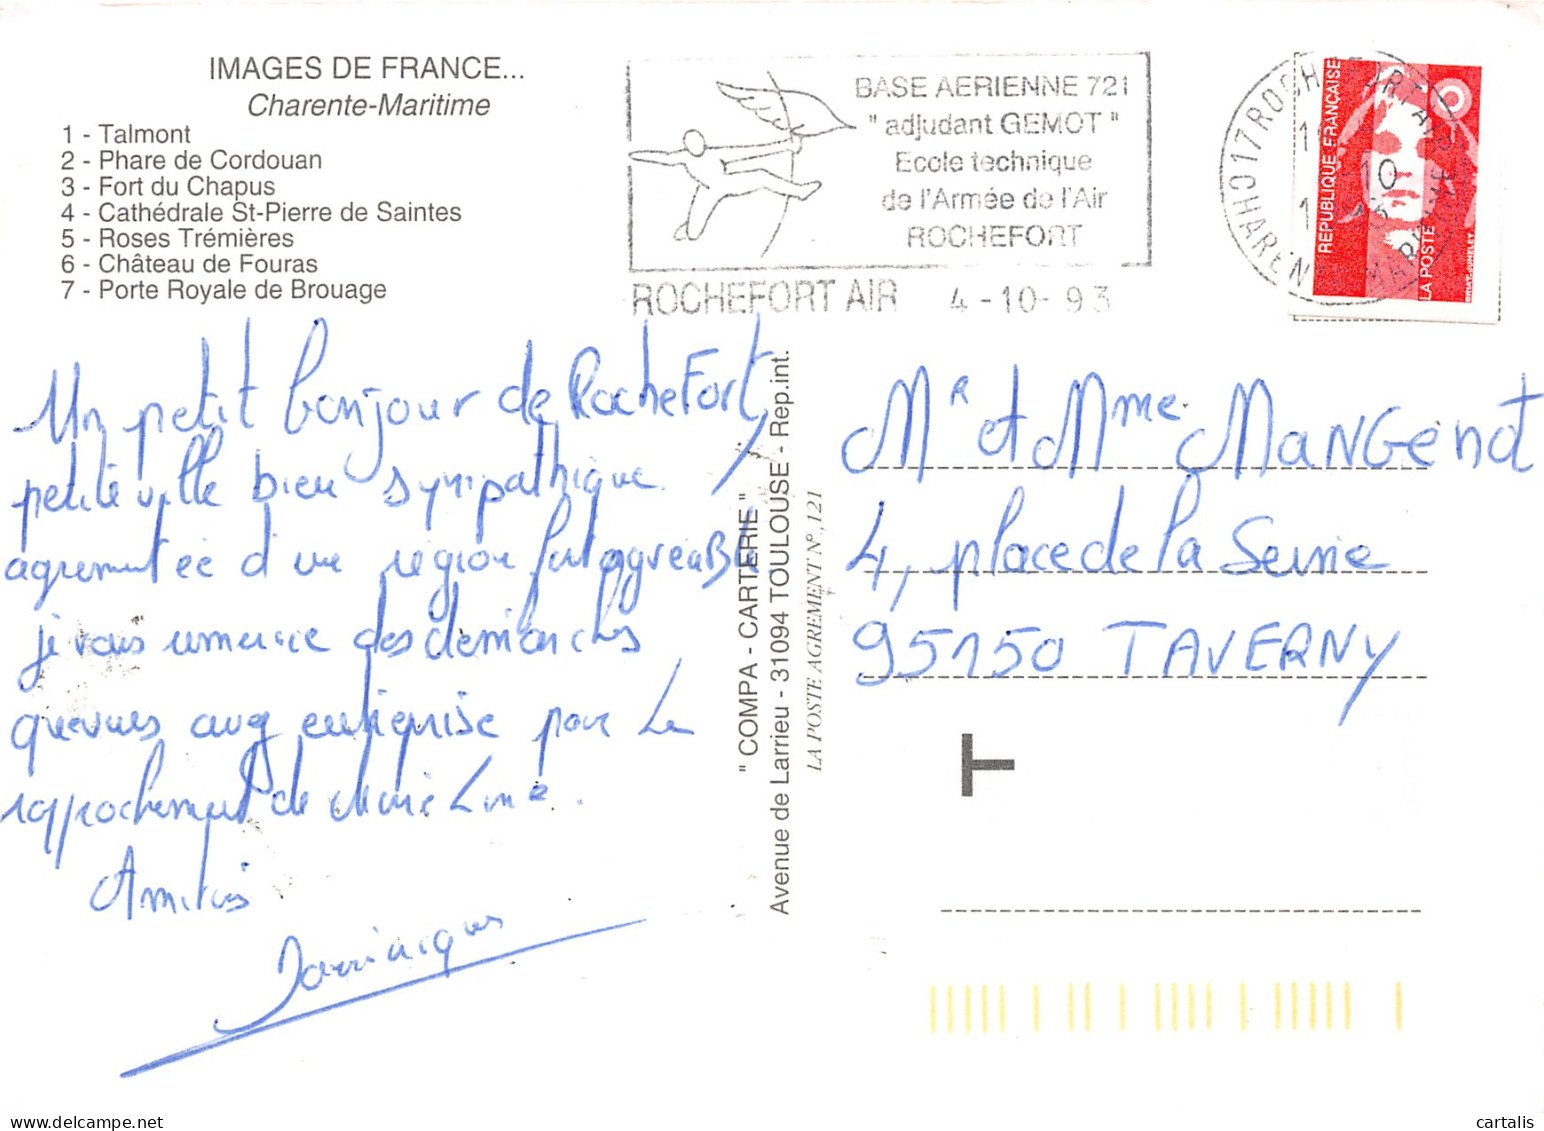 IMAGES DE FRANCE...
Charente-Maritime
1 - Talmont
2 - Phare de Cordouan
3 - Fort du Chapus
4 - Cathédrale St-Pierre de Saintes
5 - Roses Trémières
6 - Château de Fouras
7 - Porte Royale de Brouage
BASE AERIENNE 721
" adjudant GEMOT "
Ecole technique
de l'Armée de l'Air
ROCHEFORT
ROCHEFORT AIR 4 -10- 93
17 ROCHEFORT AIR
CHARENTE MARITIME
REPUBLIQUE FRANÇAISE
LA POSTE
Un petit bonjour de RocheFort,
petite ville bien sympathique
agrementée d'une région fort agréaBle
je vous remercie des demarches
que vous avez entreprise pour le
rapprochement de Marie Line.
Amitiés
" COMPA - CARTERIE "
Avenue de Larrieu - 31094 TOULOUSE - Rep.int.
LA POSTE AGREMENT N°, 121
Mr et Mme MANGenot
4, place de la Seine
95150 TAVERNY
T
cartalis